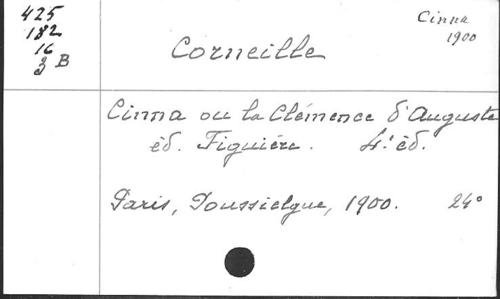 425
182
16
3 B
Cinna
1900
Corneille
Cinna ou la Clémence d'Auguste
éd. Figuière. 4.e éd.
Paris, Poussielgue, 1900. 24°